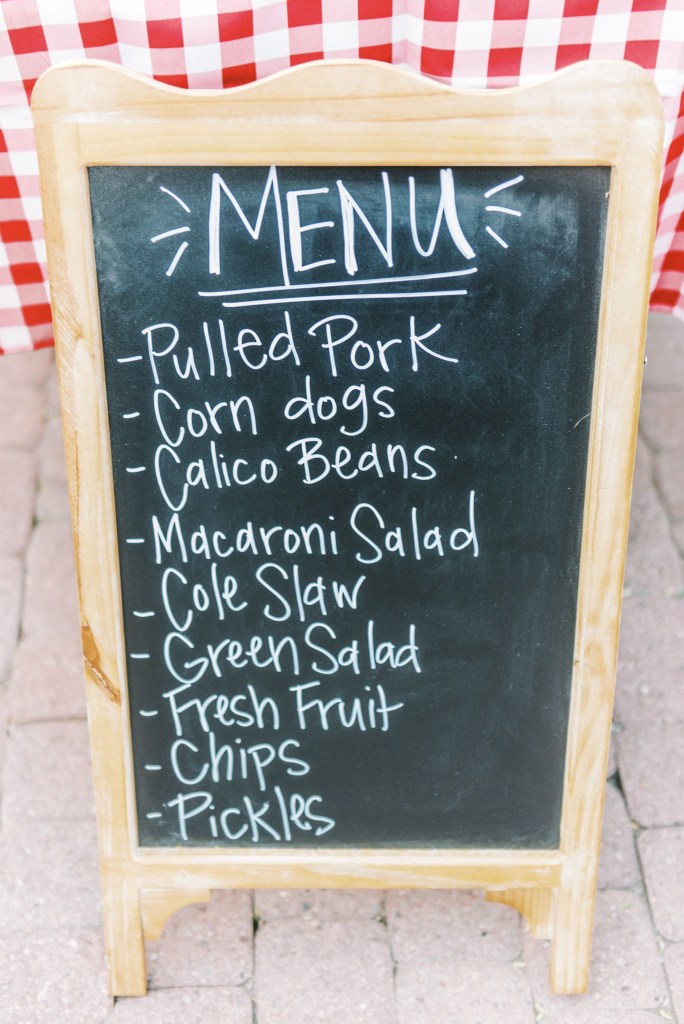 MENU
- Pulled Pork
- Corn dogs
- Calico Beans
- Macaroni Salad
- Cole Slaw
- Green Salad
- Fresh Fruit
- Chips
- Pickles